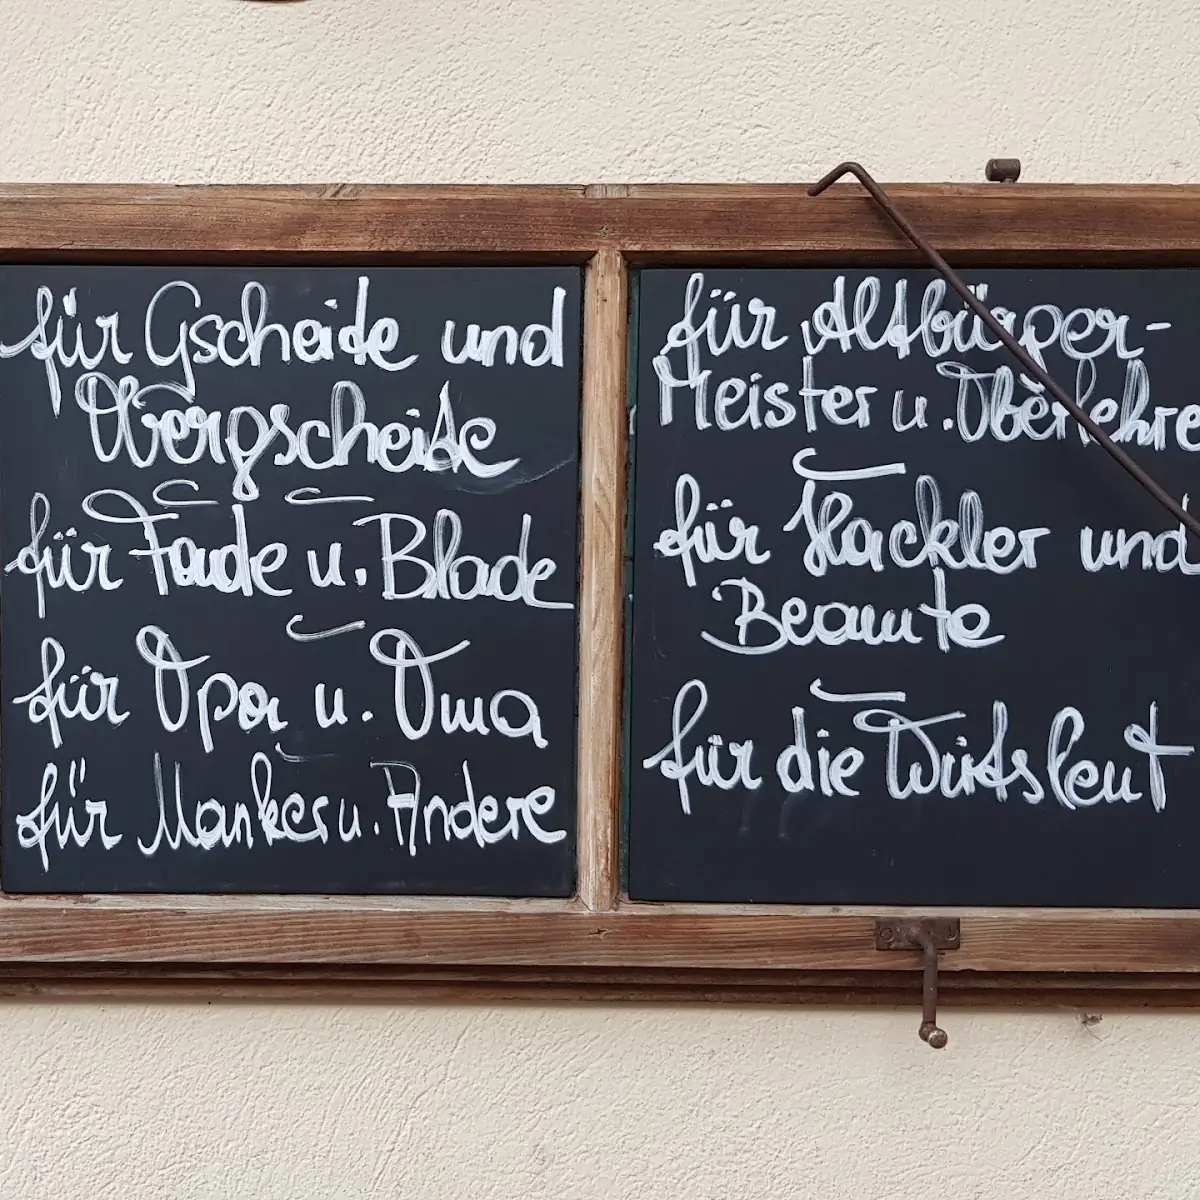 für Gscheide und
Obergscheide
für Fade u. Blade
für Opa u. Oma
für Manker u. Andere
für Altbürger-
Meister u. Oberlehre
für Hackler und
Beamte
für die Wirtsleut